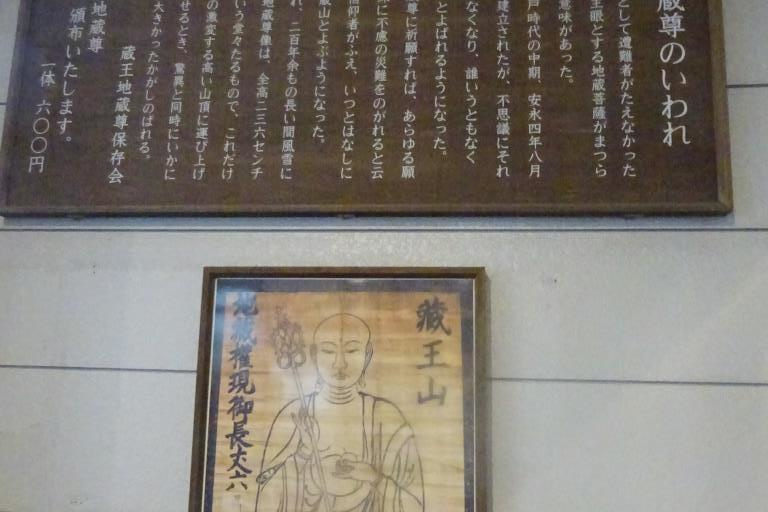 蔵尊のいわれ
として遭難者がたえなかった
主眼とする地蔵菩薩がまつら
意味があった。
戸時代の中期、安永四年八月
建立されたが、不思議にそれ
なくなり、誰いうともなく
とよばれるようになった。
尊に祈願すれば、あらゆる願
に不慮の災難をのがれると云
信仰者がふえ、いつとはなしに
蔵山とよぶようになった。
れ、二百年余もの長い間風雪に
地蔵尊像は、全高二三六センチ
いう堂々たるもので、これだけ
の悪変する高い山頂に運び上げ
せるとき、驚異と同時にいかに
大きかったかがしのばれる。
蔵王地蔵尊保存会
地蔵尊
頒布いたします。
一体 六〇〇円
蔵王山
地蔵権現御長丈六